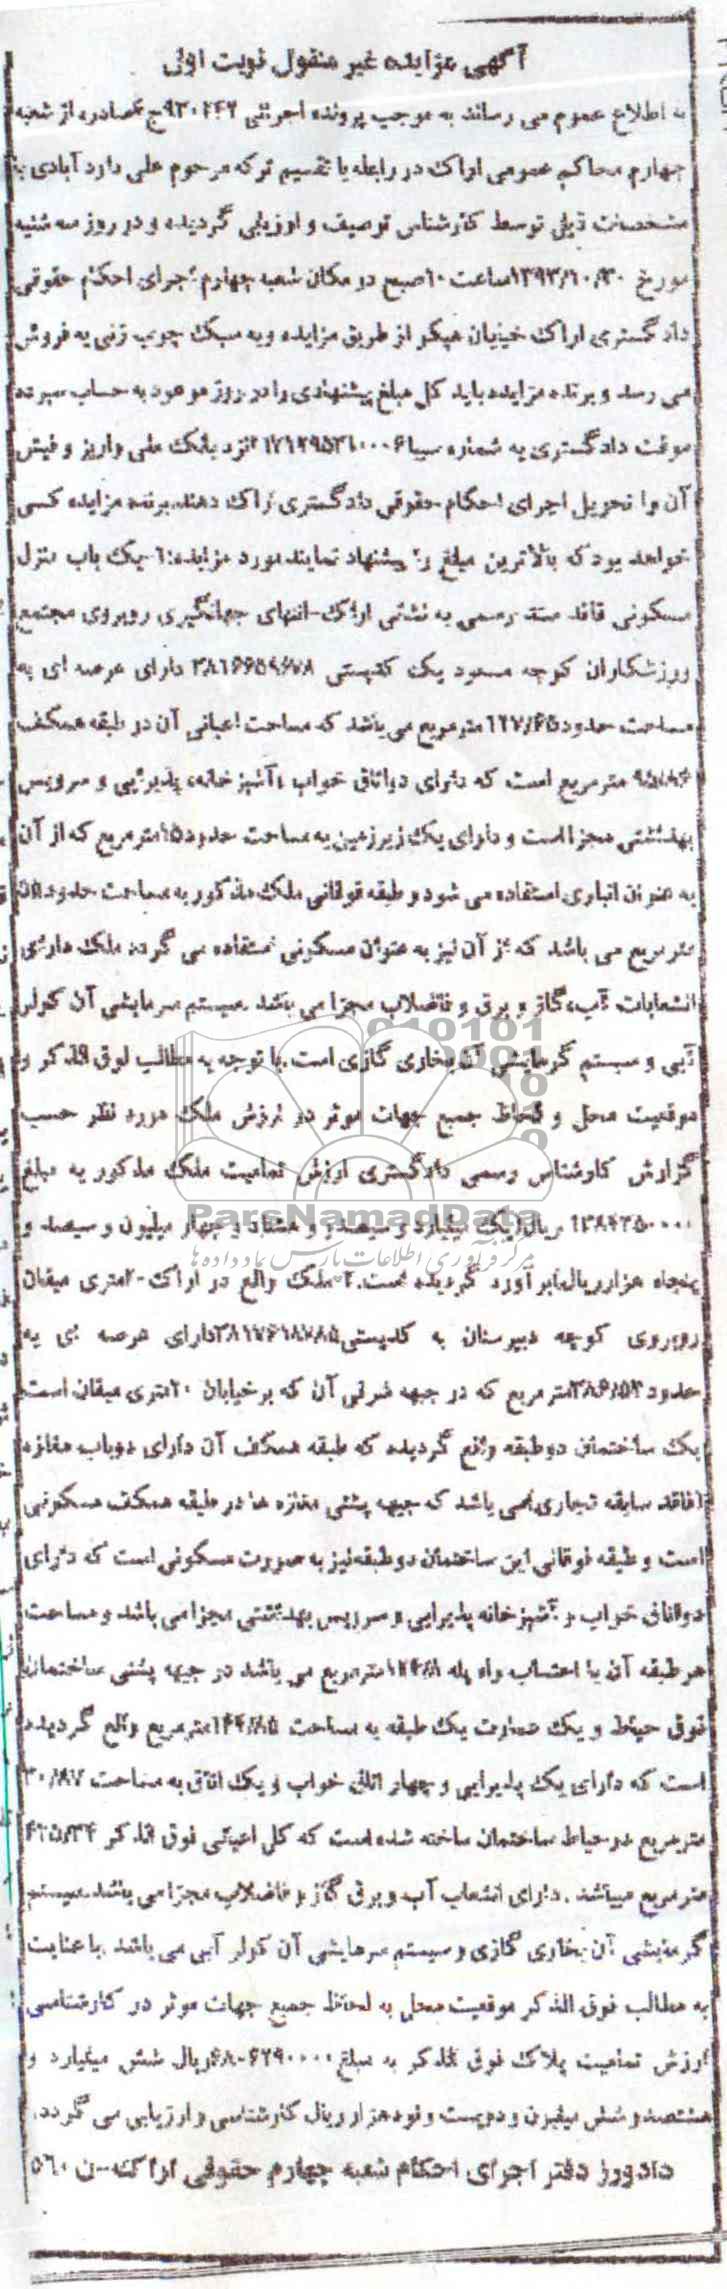 آگهی مزایده غیر منقول نوبت اول
به اطلاع عموم می رساند به موجب پرونده اجرائی ۹۳۰۲۴۲ج۴صادره از شعبه
چهارم محاکم عمومی اراک در رابطه با تقسیم ترکه مرحوم علی دارد آبادی با
مشخصات ذیل توسط کارشناس توصیف و ارزیابی گردیده و در روز سه شنبه
مورخ ۱۳۹۳/۱۰/۳۰ساعت ۱۰صبح در مکان شعبه چهارم اجرای احکام حقوقی
دادگستری اراک خیابان هپکو از طریق مزایده و به سبک چوب زنی به فروش
می رسد و برنده مزایده باید کل مبلغ پیشنهادی را در روز موعود به حساب سپرده
موقت دادگستری به شماره سیبا نزد بانک ملی واریز و فیش
آن را تحویل اجرای احکام حقوقی دادگستری اراک دهند.برنده مزایده کسی
خواهد بود که بالاترین مبلغ را پیشنهاد نمایند.مورد مزایده:۱-یک باب منزل
مسکونی فاقد سند رسمی به نشانی اراک-انتهای جهانگیری روبروی مجتمع
ورزشکاران کوچه مسعود یک کدپستی ۳۸۱۶۶۵۹۶۷۸ دارای عرصه ای به
مساحت حدود ۱۲۷/۶۵مترمربع می باشد که مساحت اعیانی آن در طبقه همکف
۹۵/۸۶ مترمربع است که دارای دواتاق خواب ،آشپزخانه، پذیرایی و سرویس
بهداشتی مجزا است و دارای یک زیرزمین به مساحت حدود ۱۵مترمربع که از آن
به عنوان انباری استفاده می شود و طبقه فوقانی ملک مذکور به مساحت حدود
مترمربع می باشد که از آن نیز به عنوان مسکونی استفاده می گردد ملک دارای
انشعابات آب،گاز و برق و فاضلاب مجزا می باشد .سیستم سرمایشی آن کولر
آبی و سیستم گرمایشی آن بخاری گازی است.با توجه به مطالب فوق الذکر و
موقعیت محل و لحاظ جمیع جهات موثر در ارزش ملک مورد نظر حسب
گزارش کارشناس رسمی دادگستری ارزش تمامیت ملک مذکور به مبلغ
۱۳۸۴۳۵۰۰۰۰ ریال(یک میلیارد و سیصد و هشتاد و چهار میلیون و سیصد و
پنجاه هزارریال)برآورد گردیده است.۲-ملک واقع در اراک-۲۰متری میقان
روبروی کوچه دبیرستان به کدپستی۳۸۱۷۶۱۸۷۸۵دارای عرصه ای به
حدود ۳۸۶/۵۳مترمربع که در جبهه شرقی آن که برخیابان ۲۰متری میقان است
یک ساختمان دوطبقه واقع گردیده که طبقه همکف آن دارای دوباب مغازه
(فاقد سابقه تجاری)می باشد که جبهه پشتی مغازه ها در طبقه همکف مسکونی
است و طبقه فوقانی این ساختمان دوطبقه نیز به صورت مسکونی است که دارای
دواتاق خواب و آشپزخانه پذیرایی و سرویس بهداشتی مجزا می باشد و مساحت
هر طبقه آن با احتساب راه پله مترمربع می باشد در جبهه پشتی ساختمان
فوق حیاط و یک عمارت یک طبقه به مساحت ۱۴۴/۸۵مترمربع واقع گردیده
است که دارای یک پذیرایی و چهار اتاق خواب و یک اتاق به مساحت ۳۰/۸۷
مترمربع در حیاط ساختمان ساخته شده است که کل اعیانی فوق الذکر
مترمربع میباشد .دارای انشعاب آب و برق گاز و فاضلاب مجزا می باشد.سیستم
گرمایشی آن بخاری گازی و سیستم سرمایشی آن کولر آبی می باشد .با عنایت
به مطالب فوق الذکر موقعیت محل به لحاظ جمیع جهات موثر در کارشناسی
ارزش تمامیت پلاک فوق الذکر به مبلغ ۶۸۰۶۲۹۰۰۰۰ریال شش میلیارد و
هشتصد و شش میلیون و دویست و نود هزار ریال کارشناسی و ارزیابی می گردد.
دادورز دفتر اجرای احکام شعبه چهارم حقوقی اراک-ن ۵۶۰
ParsNamadData
مرکز فرآوری اطلاعات پارس نماد داده ها